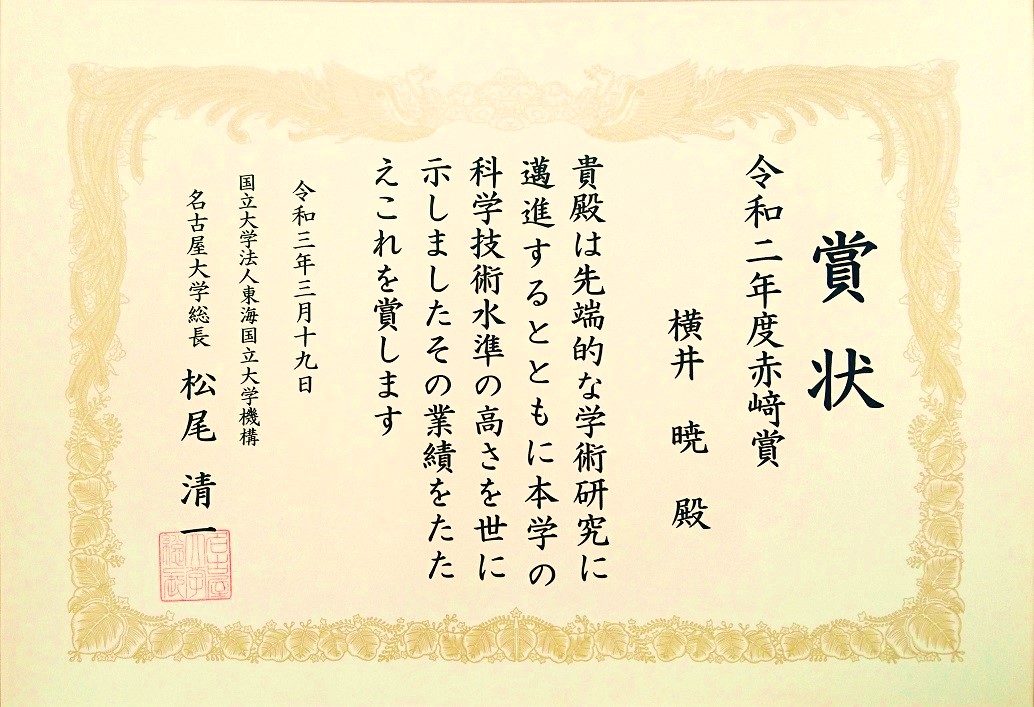 賞状
令和二年度赤﨑賞
横井 暁 殿
貴殿は先端的な学術研究に
邁進するとともに本学の
科学技術水準の高さを世に
示しましたその業績をたた
えこれを賞します
令和三年三月十九日
国立大学法人東海国立大学機構
名古屋大学総長 松尾 清一